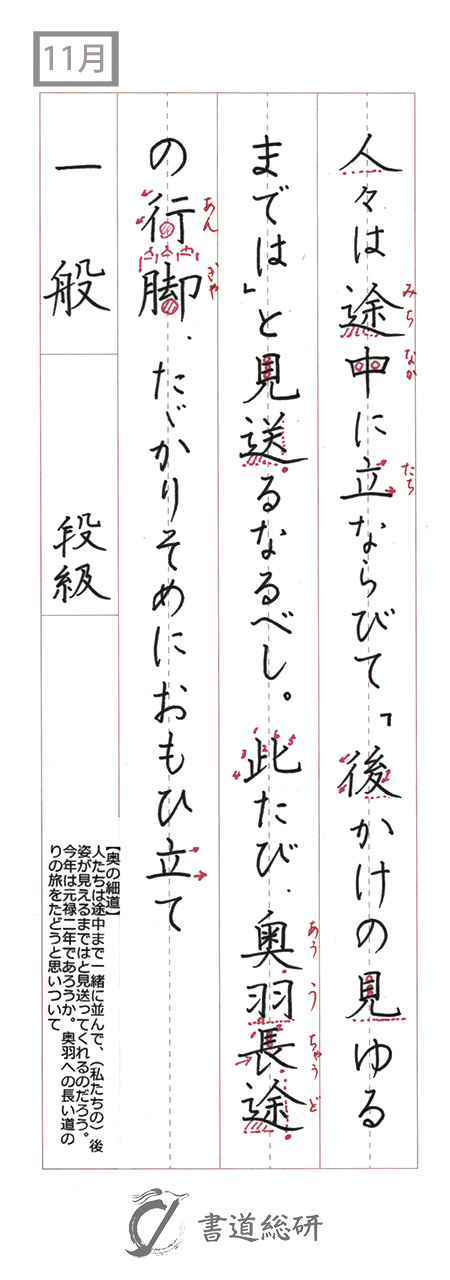 11月
人々は途中に立ならびて「後かけの見ゆる
みち
なか
たち
までは」と見送るなるべし。此たび、奥羽長途
あう
う
ちゃう
ど
の行脚、たゞかりそめにおもひ立て
あん
ぎゃ
一般
段級
【奥の細道】
人たちは途中まで一緒に並んで、(私たちの)後
姿が見えるまではと見送ってくれるのだろう。
今年は元禄二年であろうか。奥羽への長い道の
りの旅をたどうと思いついて
書道総研